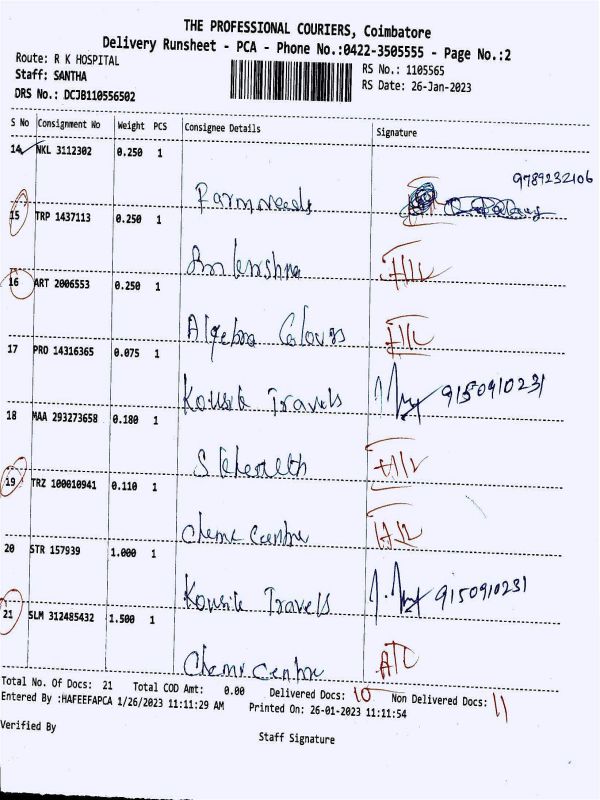 THE PROFESSIONAL COURIERS, Coimbatore
Delivery Runsheet - PCA - Phone No.:0422-3505555 - Page No.:2
Route: R K HOSPITAL
RS No.: 1105565
Staff: SANTHA
RS Date: 26-Jan-2023
DRS No.: DCJB110556502
S No Consignment No Weight PCS Consignee Details Signature
14 NKL 3112302 0.250 1
9789232106
Farm needs
15 TRP 1437113 0.250 1
krishna
16 ART 2006553 0.250 1
Algebra Colours
17 PRO 14316365 0.075 1
Kousik Travels 9150910231
18 MAA 293273658 0.180 1
19 TRZ 100010941 0.110 1
Chemi Centre
20 STR 157939 1.000 1
Kousik Travels 9150910231
21 SLM 312485432 1.500 1
Chemi Centre
Total No. Of Docs: 21 Total COD Amt: 0.00 Delivered Docs: 10 Non Delivered Docs: 11
Entered By :HAFEEFAPCA 1/26/2023 11:11:29 AM Printed On: 26-01-2023 11:11:54
Verified By
Staff Signature